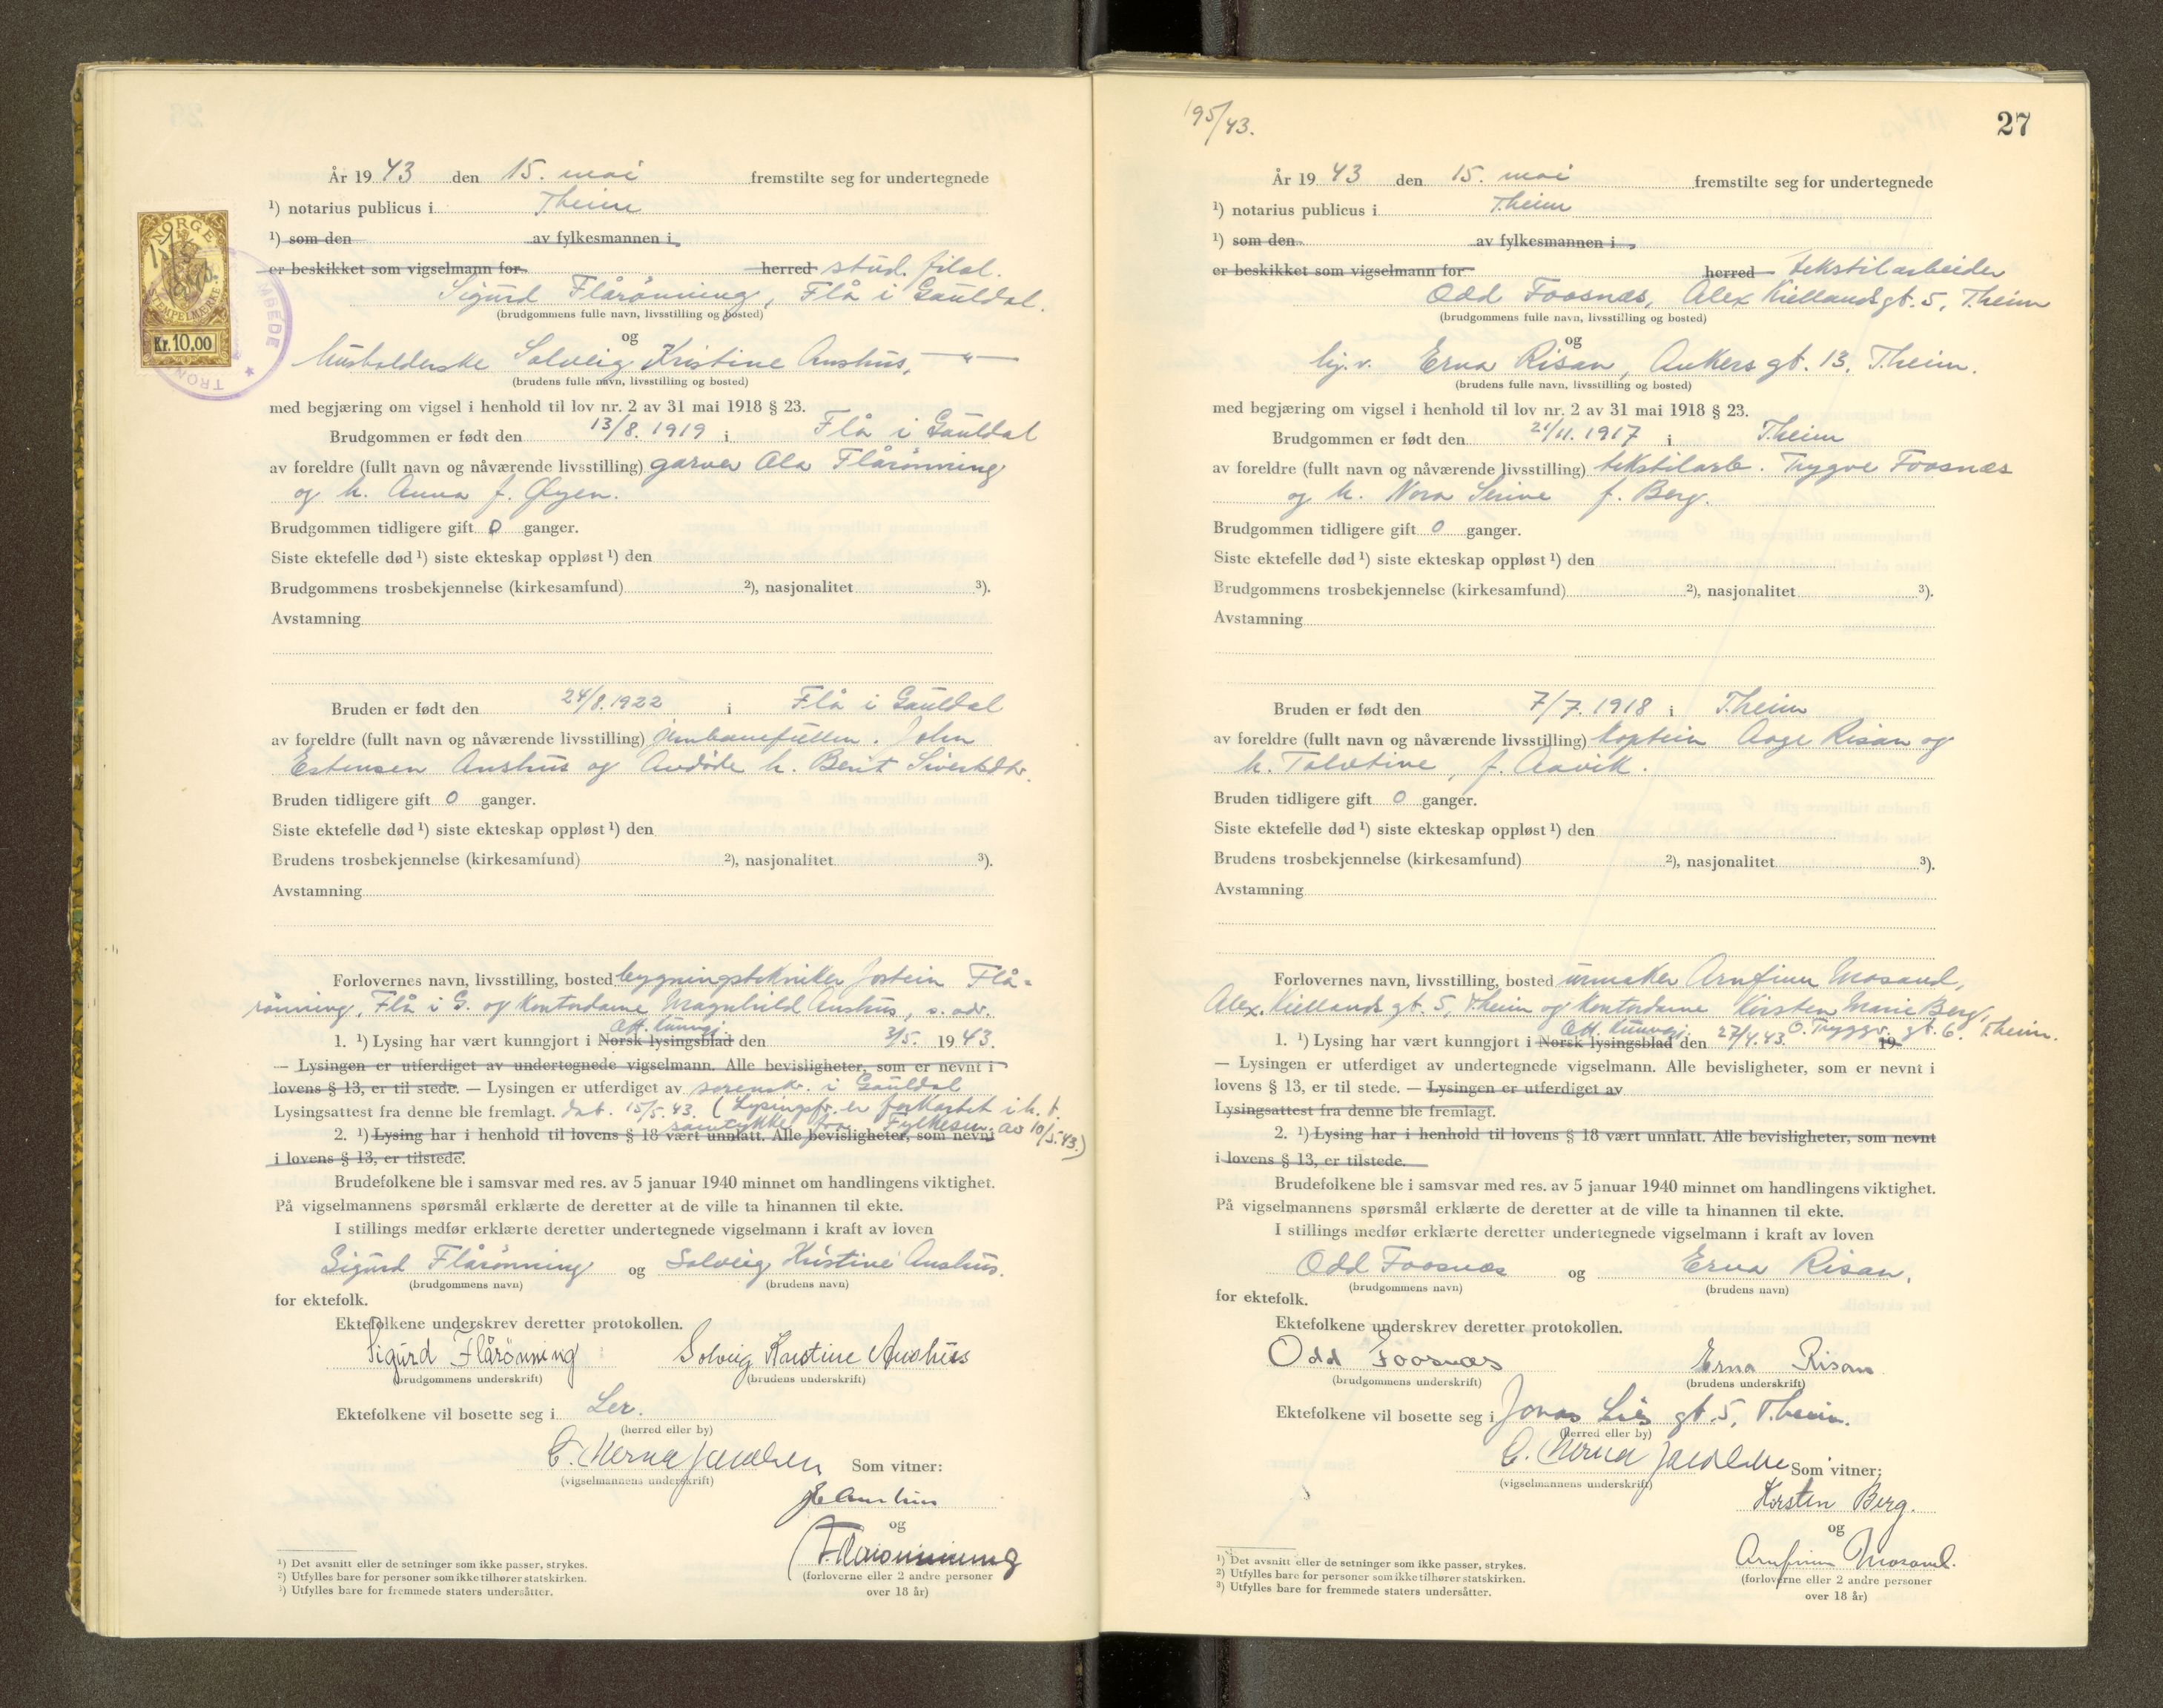 År 19 43 den 15. mai fremstilte seg for undertegnede
¹) notarius publicus i T.heim
¹) som den av fylkesmannen i
er beskikket som vigselmann for herred stud. filol.
Sigurd Flårønning, Flå i Gauldal.
(brudgommens fulle navn, livsstilling og bosted)
og
husholderske Solveig Kristine Aushus, — " —
(brudens fulle navn, livsstilling og bosted)
med begjæring om vigsel i henhold til lov nr. 2 av 31 mai 1918 § 23.
Brudgommen er født den 13/8. 1919 i Flå i Gauldal
av foreldre (fullt navn og nåværende livsstilling) garver Ola Flårønning
og h. Anna f. Øyen.
Brudgommen tidligere gift 0 ganger.
Siste ektefelle død ¹) siste ekteskap oppløst ¹) den
Brudgommens trosbekjennelse (kirkesamfund) ²), nasjonalitet ³).
Avstamning
Bruden er født den 24/8. 1922 i Flå i Gauldal
av foreldre (fullt navn og nåværende livsstilling) John
Estensen Aushus og avdøde h. Berit Sivertsdtr.
Bruden tidligere gift 0 ganger.
Siste ektefelle død ¹) siste ekteskap oppløst ¹) den
Brudens trosbekjennelse (kirkesamfund) ²), nasjonalitet ³).
Avstamning
Forlovernes navn, livsstilling, bosted bygningstekniker Jostein Flå-
rønning, Flå i G. og kontordame Magnhild Aushus, s. adr.
Off. kunngj.
1. ¹) Lysing har vært kunngjort i Norsk lysingsblad den 3/5. 19 43.
— Lysingen er utferdiget av undertegnede vigselmann. Alle bevisligheter, som er nevnt i
lovens § 13, er til stede. — Lysingen er utferdiget av sorenskr. i Gauldal
Lysingsattest fra denne ble fremlagt. dat. 15/5. 43. (Lysingsfr. er forkortet i h. t.
samtykke fra Fylkesm. av 10/5-43.)
2. ¹) Lysing har i henhold til lovens § 18 vært unnlatt. Alle bevisligheter, som nevnt
i lovens § 13, er tilstede.
Brudefolkene ble i samsvar med res. av 5 januar 1940 minnet om handlingens viktighet.
På vigselmannens spørsmål erklærte de deretter at de ville ta hinannen til ekte.
I stillings medfør erklærte deretter undertegnede vigselmann i kraft av loven
Sigurd Flårønning og Solveig Kristine Aushus.
(brudgommens navn) (brudens navn)
for ektefolk.
Ektefolkene underskrev deretter protokollen.
Sigurd Flårønning Solveig Kristine Aushus
(brudgommens underskrift) (brudens underskrift)
Ektefolkene vil bosette seg i Ler.
(herred eller by)
Som vitner:
(vigselmannens underskrift)
Aushus
og
J. Flårønning
(forloverne eller 2 andre personer
over 18 år)
¹) Det avsnitt eller de setninger som ikke passer, strykes.
²) Utfylles bare for personer som ikke tilhører statskirken.
³) Utfylles bare for fremmede staters undersåtter.
NORGE
STEMPELMERKE
Kr. 10,00
195/43.
27
År 19 43 den 15. mai fremstilte seg for undertegnede
¹) notarius publicus i T.heim
¹) som den av fylkesmannen i
er beskikket som vigselmann for herred tekstilarbeider
Odd Foosnæs, Alex Kiellands gt. 5, T.heim
(brudgommens fulle navn, livsstilling og bosted)
og
hj.v. Erna Risan, Ankers gt. 13, T.heim.
(brudens fulle navn, livsstilling og bosted)
med begjæring om vigsel i henhold til lov nr. 2 av 31 mai 1918 § 23.
Brudgommen er født den 21/11. 1917 i T.heim
av foreldre (fullt navn og nåværende livsstilling) tekstilarb. Trygve Foosnæs
og h. Nora Serine f. Berg.
Brudgommen tidligere gift 0 ganger.
Siste ektefelle død ¹) siste ekteskap oppløst ¹) den
Brudgommens trosbekjennelse (kirkesamfund) ²), nasjonalitet ³).
Avstamning
Bruden er født den 7/7. 1918 i T.heim
av foreldre (fullt navn og nåværende livsstilling) kaptein Aage Risan og
h. f. Aavik.
Bruden tidligere gift 0 ganger.
Siste ektefelle død ¹) siste ekteskap oppløst ¹) den
Brudens trosbekjennelse (kirkesamfund) ²), nasjonalitet ³).
Avstamning
Forlovernes navn, livsstilling, bosted urmaker Arnfinn Mosand,
Alex. Kiellands gt. 5, T.heim og kontordame Kirsten Marie Berg,
Off. kunngj. O. Tryggv. gt. 6. T.heim.
1. ¹) Lysing har vært kunngjort i Norsk lysingsblad den 27/4.43. 19
— Lysingen er utferdiget av undertegnede vigselmann. Alle bevisligheter, som er nevnt i
lovens § 13, er til stede. — Lysingen er utferdiget av
Lysingsattest fra denne ble fremlagt.
2. ¹) Lysing har i henhold til lovens § 18 vært unnlatt. Alle bevisligheter, som nevnt
i lovens § 13, er tilstede.
Brudefolkene ble i samsvar med res. av 5 januar 1940 minnet om handlingens viktighet.
På vigselmannens spørsmål erklærte de deretter at de ville ta hinannen til ekte.
I stillings medfør erklærte deretter undertegnede vigselmann i kraft av loven
Odd Foosnæs og Erna Risan.
(brudgommens navn) (brudens navn)
for ektefolk.
Ektefolkene underskrev deretter protokollen.
Odd Foosnæs Erna Risan
(brudgommens underskrift) (brudens underskrift)
Ektefolkene vil bosette seg i Jonas Lies gt. 5, T.heim.
(herred eller by)
Som vitner:
(vigselmannens underskrift)
Kirsten Berg.
og
Arnfinn Mosand.
(forloverne eller 2 andre personer
over 18 år)
¹) Det avsnitt eller de setninger som ikke passer, strykes.
²) Utfylles bare for personer som ikke tilhører statskirken.
³) Utfylles bare for fremmede staters undersåtter.